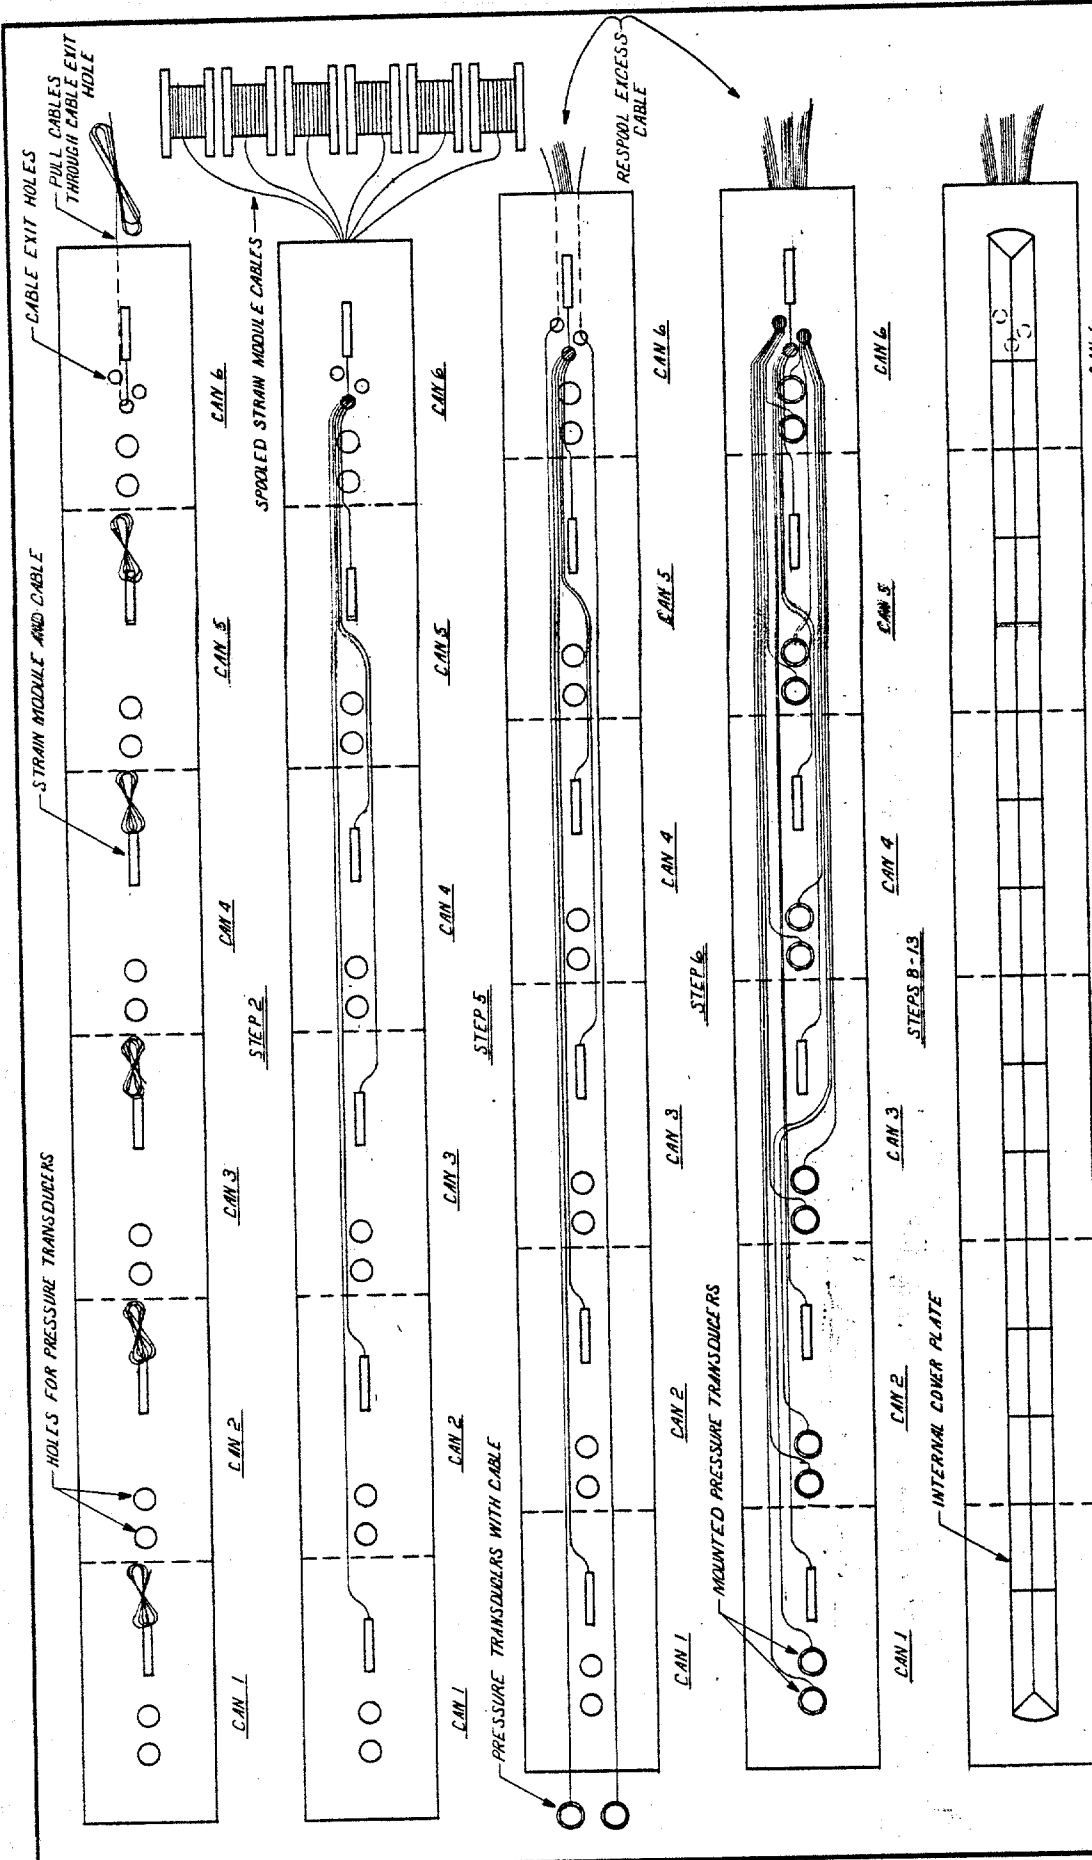 HOLES FOR PRESSURE TRANSDUCERS
STRAIN MODULE AND CABLE
CABLE EXIT HOLES
PULL CABLES
THROUGH CABLE EXIT
HOLE
CAN 1
CAN 2
CAN 3
CAN 4
CAN 5
CAN 6
STEP 2
SPOOLED STRAIN MODULE CABLES
CAN 1
CAN 2
CAN 3
CAN 4
CAN 5
CAN 6
STEP 5
PRESSURE TRANSDUCERS WITH CABLE
RESPOOL EXCESS
CABLE
CAN 1
CAN 2
CAN 3
CAN 4
CAN 5
CAN 6
STEP 6
MOUNTED PRESSURE TRANSDUCERS
CAN 1
CAN 2
CAN 3
CAN 4
CAN 5
CAN 6
STEPS 8-13
INTERNAL COVER PLATE